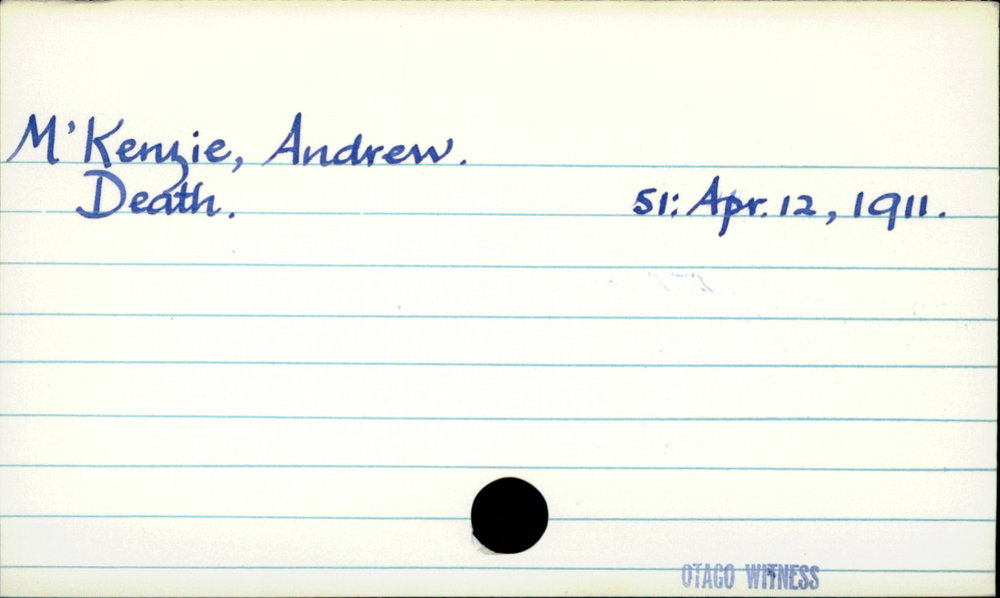 M'Kenzie, Andrew.
Death. 51: Apr. 12, 1911.
OTAGO WITNESS